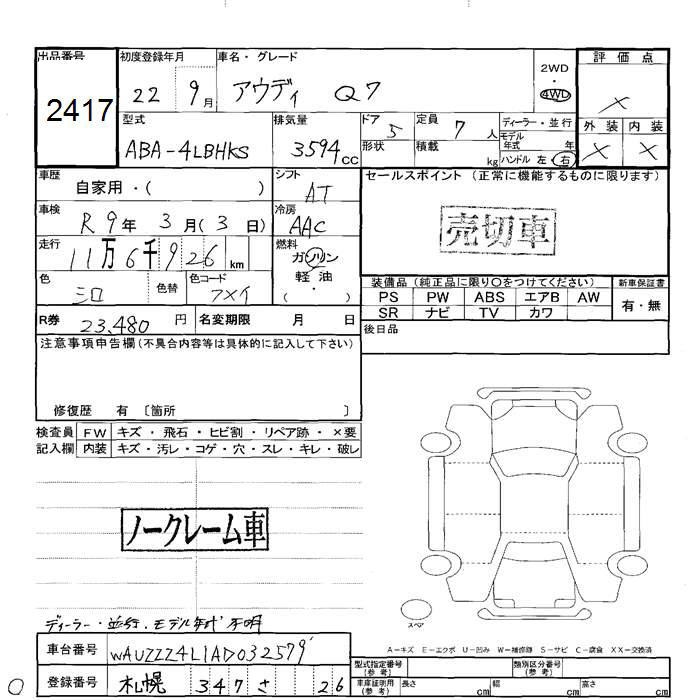 出品番号
2417
初度登録年月
22 9月
車名・グレード
アウディ Q7
2WD
・
4WD
評価点
×
外装 内装
× ×
型式
ABA-4LBHKS
排気量
3594cc
ドア 5
形状
定員 7人
積載 kg
ディーラー・並行
モデル年式 年
ハンドル 左・右
車歴
自家用・( )
シフト
AT
車検
R 9年 3月(3日)
冷房
AAC
走行
11万6千926km
燃料
ガソリン
・
軽油
( )
色
色替
色コード
R券
23,480円
名変期限 月 日
セールスポイント(正常に機能するものに限ります)
売切車
装備品(純正品に限り○をつけてください)
新車保証書
PS PW ABS エアB AW
SR ナビ TV カワ
有・無
後日品
注意事項申告欄(不具合内容等は具体的に記入して下さい)
修復歴 有 〔箇所 〕
検査員記入欄
FW キズ・飛石・ヒビ割・リペア跡・×要
内装 キズ・汚レ・コゲ・穴・スレ・キレ・破レ
ノークレーム車
ディーラー・並行、モデル年式不明
車台番号
WAUZZZ4L1AD032579
登録番号
札幌 347 さ 26
スペア
A−キズ E−エクボ U−凹み W−補修跡 S−サビ C−腐食 XX−交換済
型式指定番号(参考)
類別区分番号(参考)
車庫証明用(参考)
長さ cm 幅 cm 高さ cm